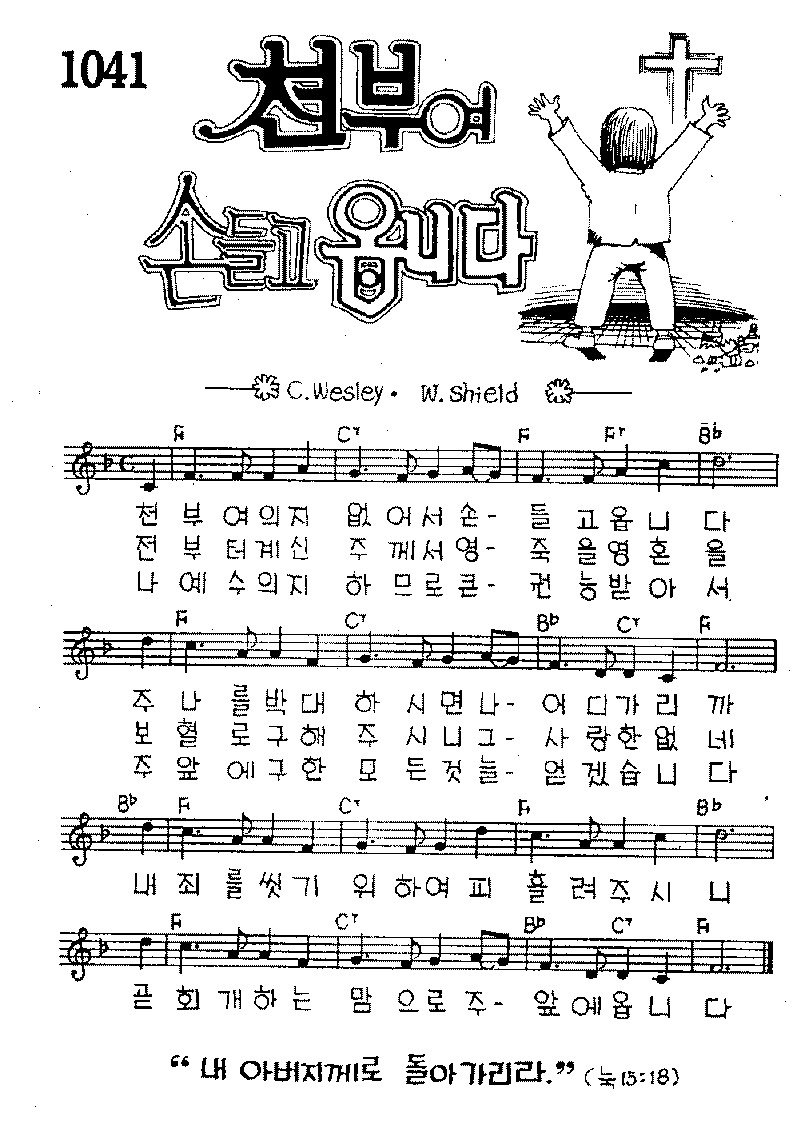 1041
천부여
손들고 옵니다
C.Wesley · W. Shield
F C7 F F7 B♭
천 부 여 의 지 없 어 서 손 - 들 고 옵 니 다
전 부 터 계 신 주 께 서 영 - 죽 을 영 혼 을
나 예 수 의 지 하 므 로 큰 - 권 능 받 아 서
F C7 B♭ C7 F
주 나 를 박 대 하 시 면 나 - 어 디 가 리 까
보 혈 로 구 해 주 시 니 그 - 사 랑 한 없 네
주 앞 에 구 한 모 든 것 늘 - 얻 겠 습 니 다
B♭ F C7 F B♭
내 죄 를 씻 기 위 하 여 피 흘 려 주 시 니
F C7 B♭ C7 F
곧 회 개 하 는 맘 으 로 주 - 앞 에 옵 니 다
“ 내 아버지께로 돌아가리라.” (눅 15:18)